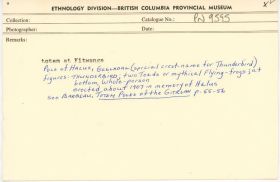 ETHNOLOGY DIVISION—BRITISH COLUMBIA PROVINCIAL MUSEUM
Collection: Catalogue No.: PN 9555
Photographer: Date:
Remarks:
totem at Kitwanga
Pole of HALUS, (special crest-name for Thunderbird)
figures: THUNDERBIRD, two Toads or mythical Flying-frogs, at
bottom, whole-person
erected about 1907 in memory of Halus
see BARBEAU, TOTEM POLES OF THE GITKSAN p. 55-56